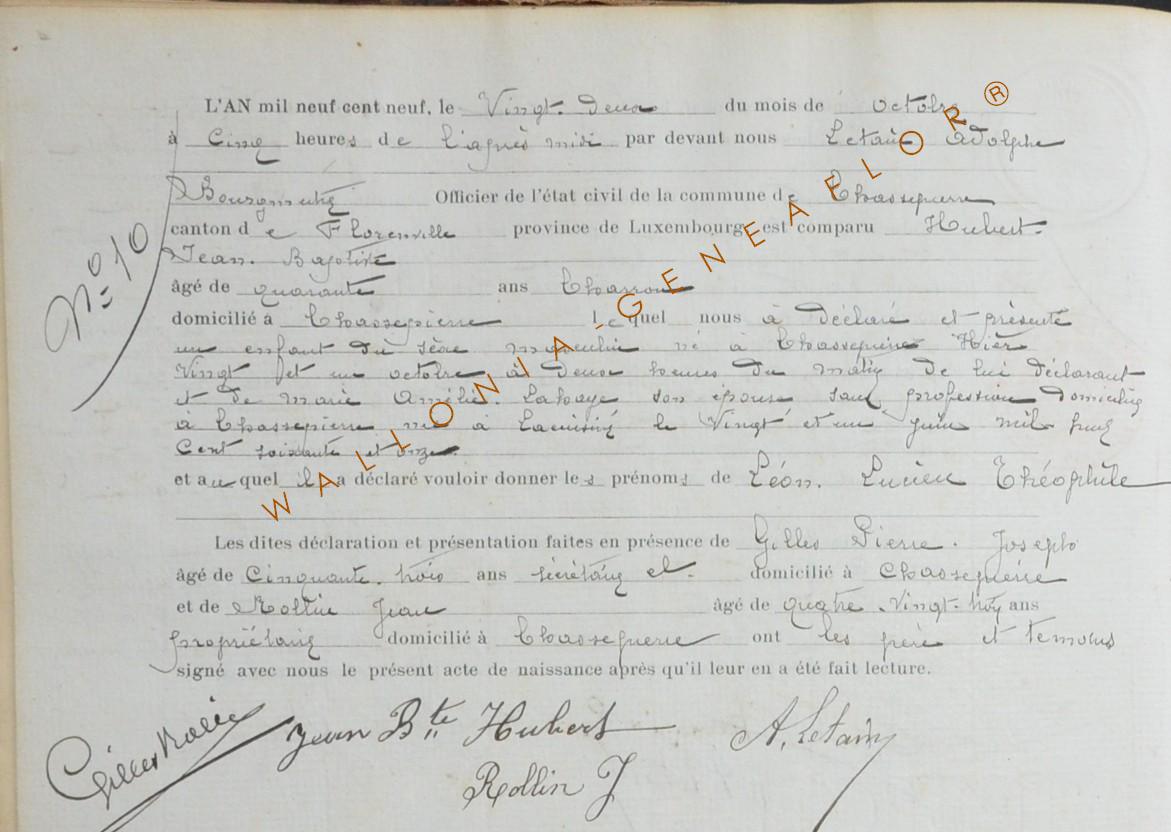 L'AN mil neuf cent neuf, le Vingt-deux du mois de octobre
à Cinq heures de l'après midi par devant nous Letain Adolphe
Bourgmestre Officier de l'état civil de la commune de Chassepierre
canton de Florenville province de Luxembourg est comparu Hubert-
Jean-Baptiste
N° 10
âgé de quarante ans Charron
domicilié à Chassepierre lequel nous à déclaré et présenté
un enfant du sèxe masculin né à Chassepierre Hier
Vingt et un octobre à deux heures du matin de lui déclarant
et de Marie Amélie Lahaye son épouse sans profession domiciliée
à Chassepierre née à le Vingt et un juin mil huit
Cent soixante et onze
et auquel il a déclaré vouloir donner les prénoms de Léon. Lucien Théophile
Les dites déclaration et présentation faites en présence de Gilles Pierre. Joseph
âgé de Cinquante-trois ans secrétaire cl. domicilié à Chassepierre
et de Rollin Jean âgé de quatre-Vingt-trois ans
propriétaire domicilié à Chassepierre ont les père et temoins
signé avec nous le présent acte de naissance après qu'il leur en a été fait lecture.
Jean Bte Hubert A. Letain
Gilles
Rollin J
WALLONIA-GENEAFLOR®